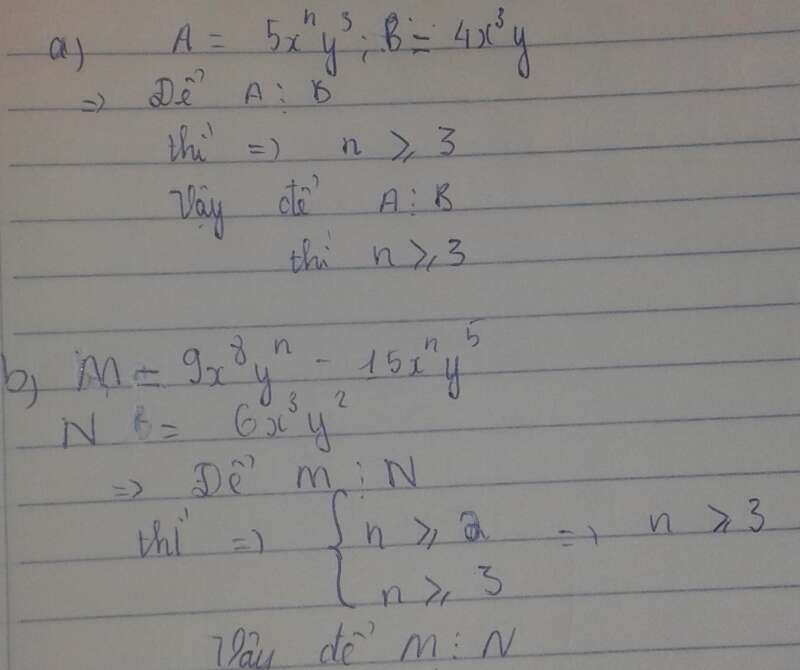 a) A = 5xⁿy³ ; B = 4x³y
=> Để A ⋮ B
thì => n ⩾ 3
Vậy để A ⋮ B
thì n ⩾ 3
b) M = 9x⁸yⁿ - 15xⁿy⁵
N = 6x³y²
=> Để M ⋮ N
thì => { n ⩾ 2 => n ⩾ 3
n ⩾ 3
Vậy để M ⋮ N